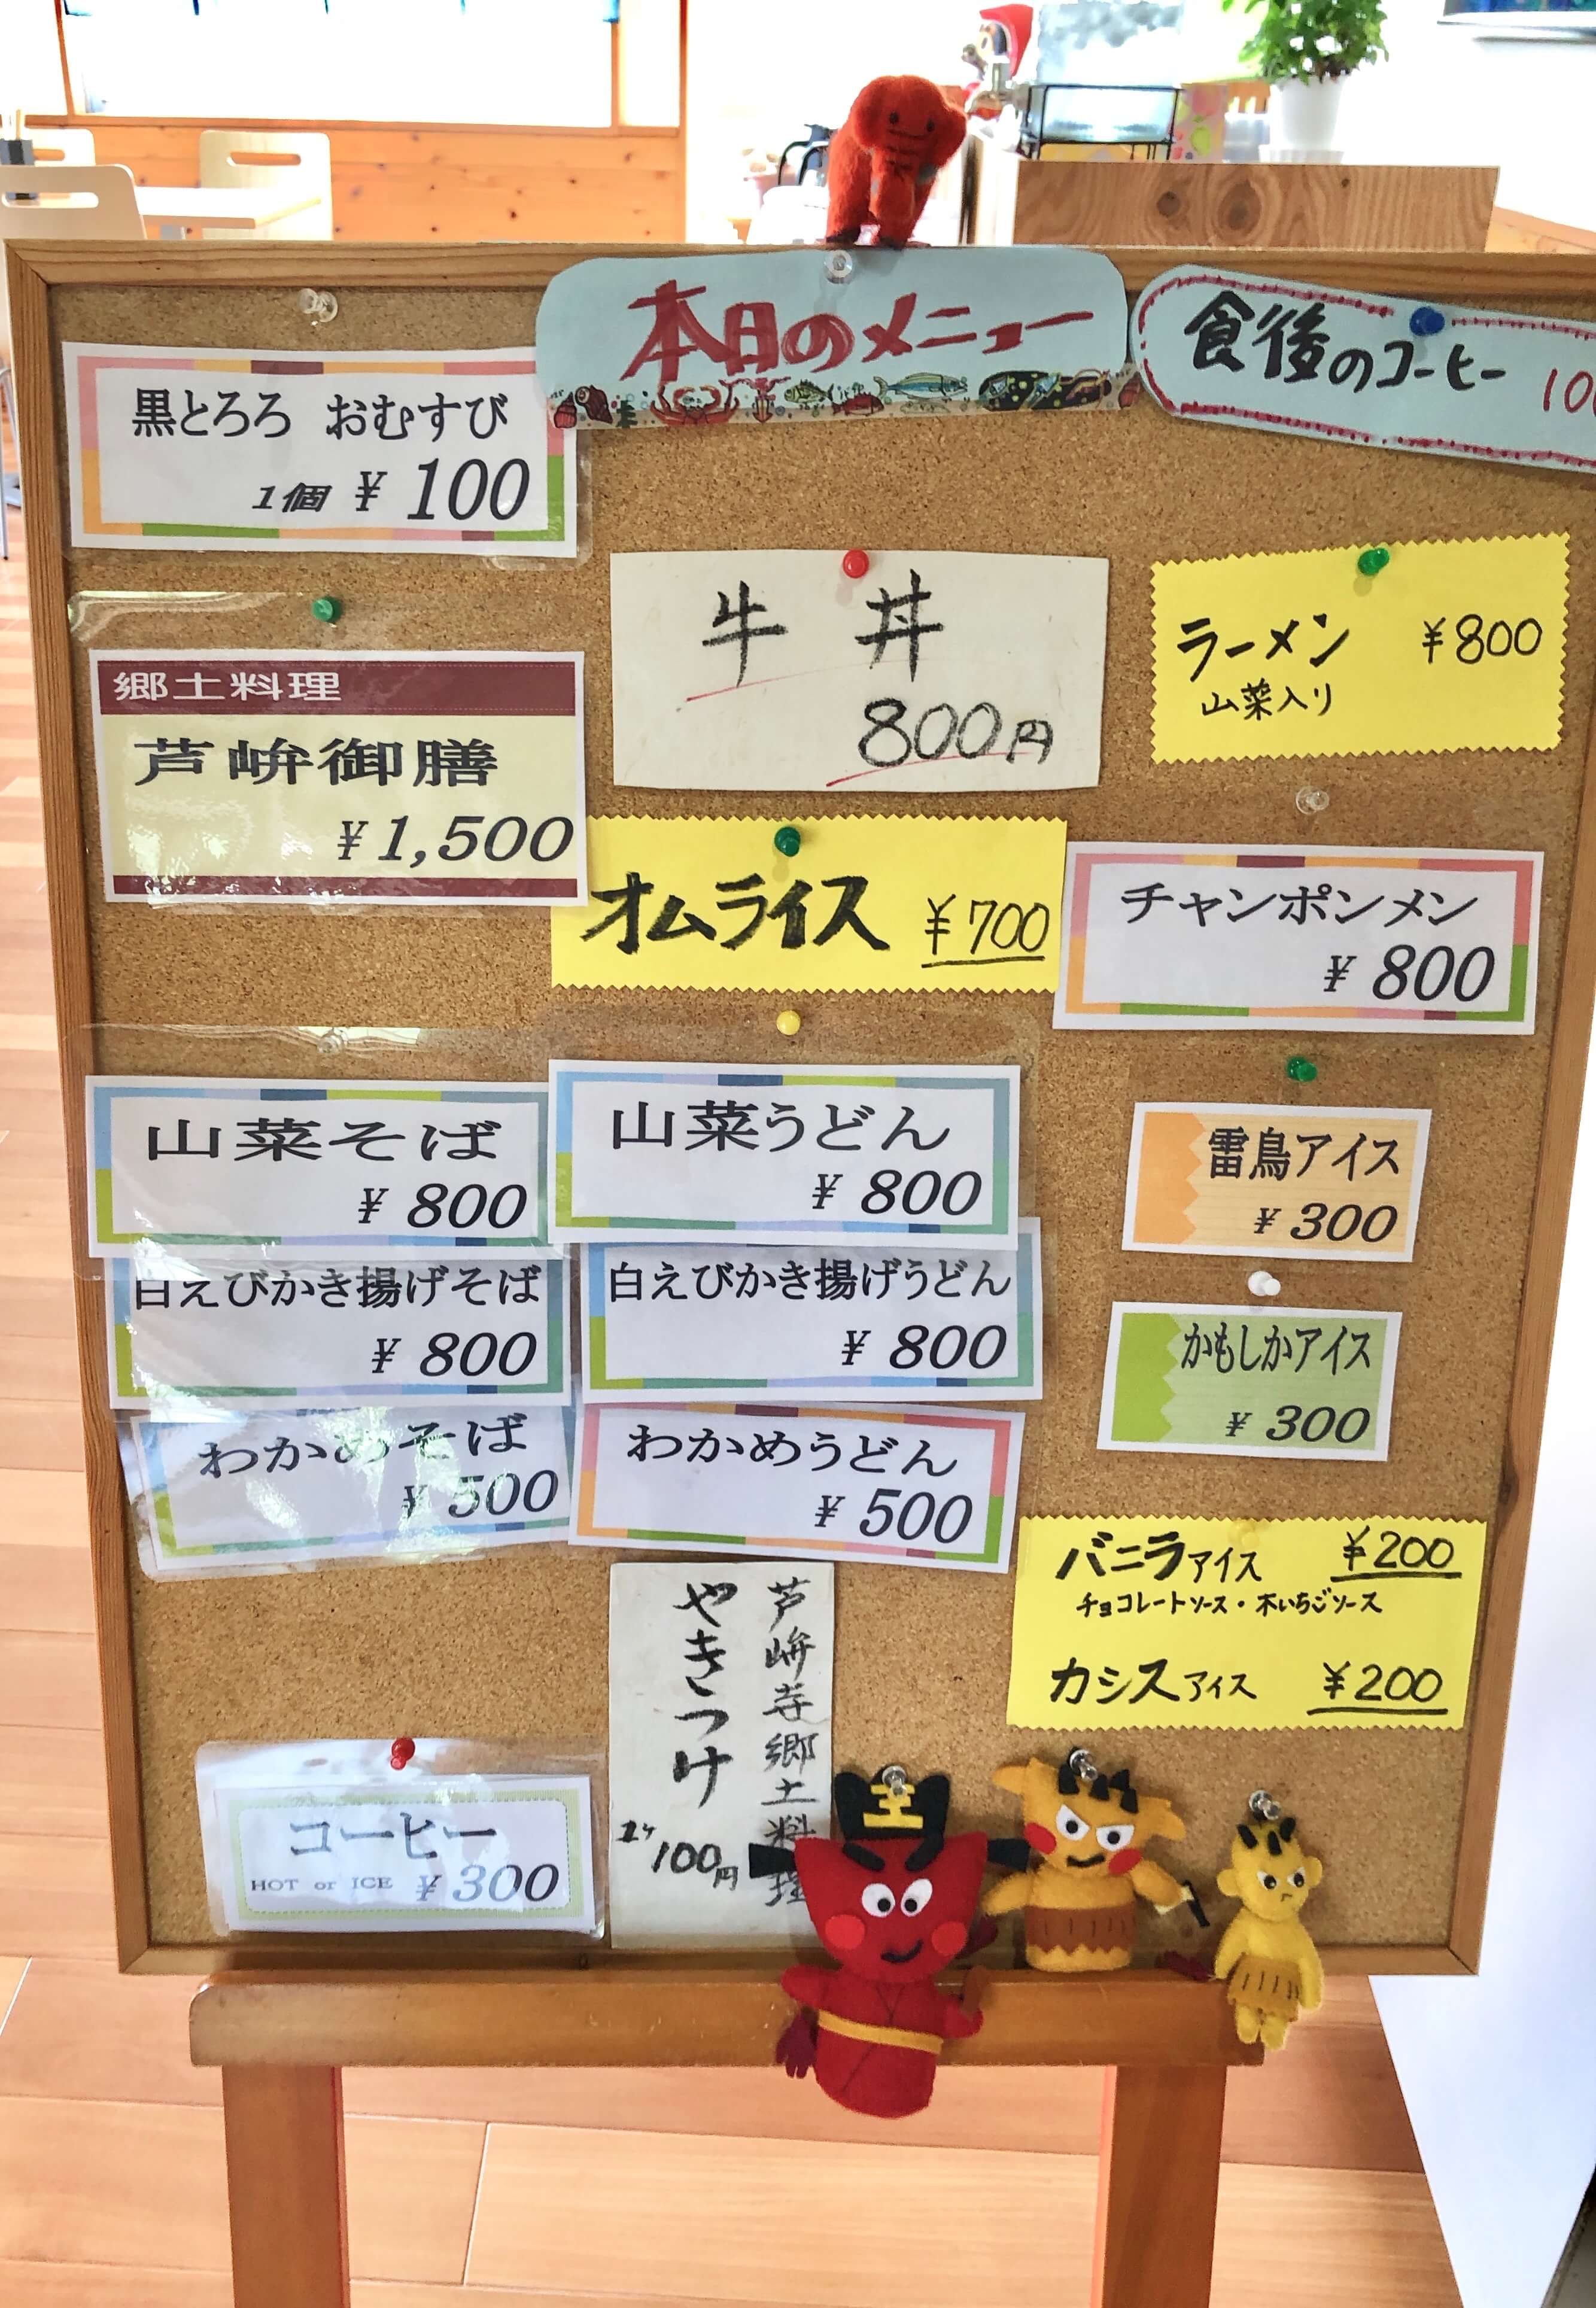 本日のメニュー
食後のコーヒー
黒とろろ おむすび
1個 ¥100
郷土料理
芦峅御膳
¥1,500
牛丼
800円
ラーメン ¥800
山菜入り
オムライス ¥700
チャンポンメン
¥800
山菜そば
¥800
山菜うどん
¥800
白えびかき揚げそば
¥800
白えびかき揚げうどん
¥800
わかめそば
¥500
わかめうどん
¥500
雷鳥アイス
¥300
かもしかアイス
¥300
バニラアイス ¥200
チョコレートソース・木いちごソース
カシスアイス ¥200
芦峅寺郷土料理
やきつけ
1ケ 100円
コーヒー
HOT or ICE ¥300
王